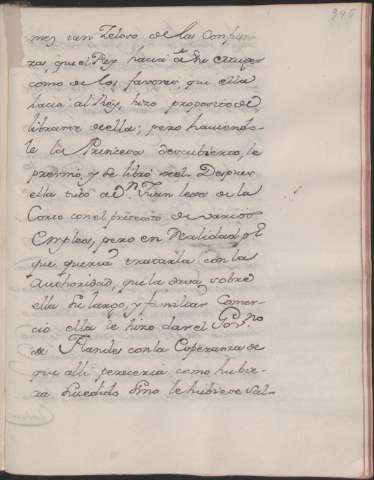 295
mez tan Zeloso de las Confian
zas que el Rey hacia à su muger
como de los favores, que ella
hacia al Rey, hizo proposito de
librarse de ella; pero haviendo-
le la Princesa descubierto, le
previno, y se libró del. Despues
ella tubó á Dn. Juan lexos de la
Corte con el pretexto de varios
Empleos, pero en Realidad pr.
que queria tratarla con la
Authoridad, que la dava sobre
ella su largo, y familiar Comer-
cio ella le hizo dar el Govno.
de Flandes con la Esperanza de
que alli pereceria como hubie-
ra sucedido sino le hubiese sal-